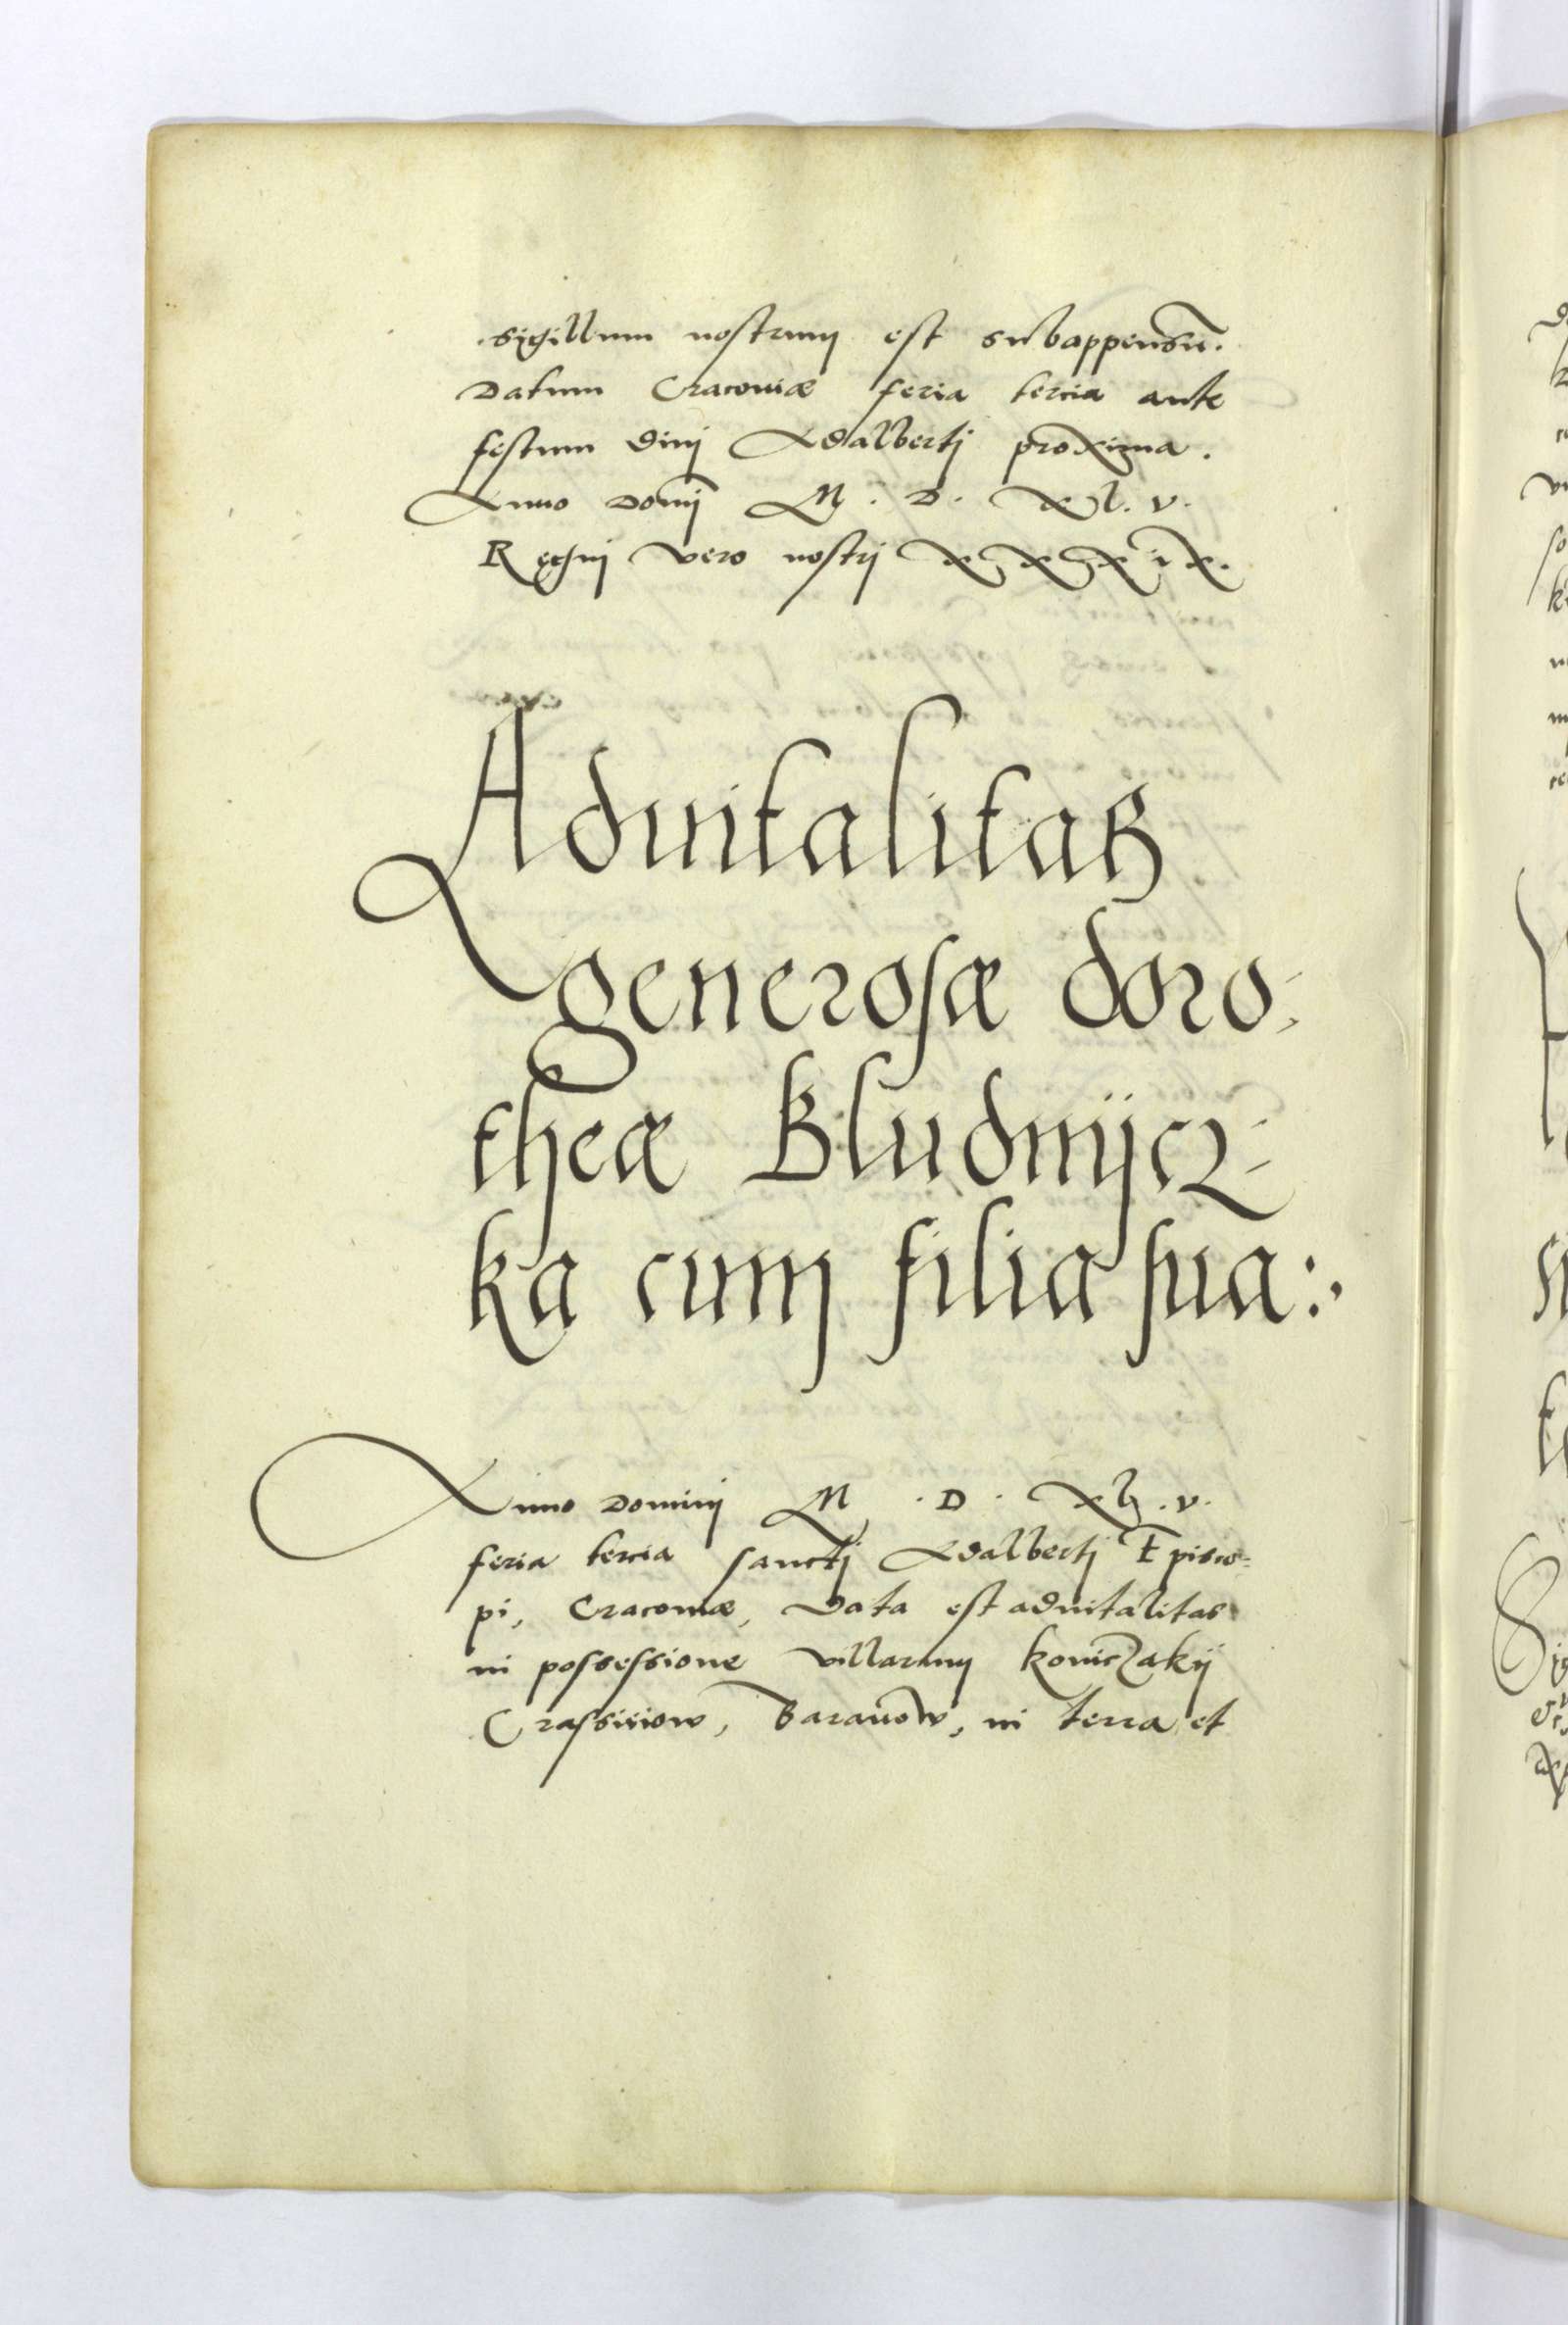 sigillum nostrum est subappensū.
Datum Cracoviæ feria tercia ante
festum divi Adalberti proxima.
Anno Domī M. D. XL. v.
Regni vero nostri XXXIX.
Advitalitas
generosæ doro-
theæ Bludnijcz-
ka cum filia sua:.
Anno Domini M. D. XL. v.
feria tercia sancti Adalberti Episco=
pi, Cracoviæ, Data est advitalitas
in possessione villarum
Baranow, in terra et